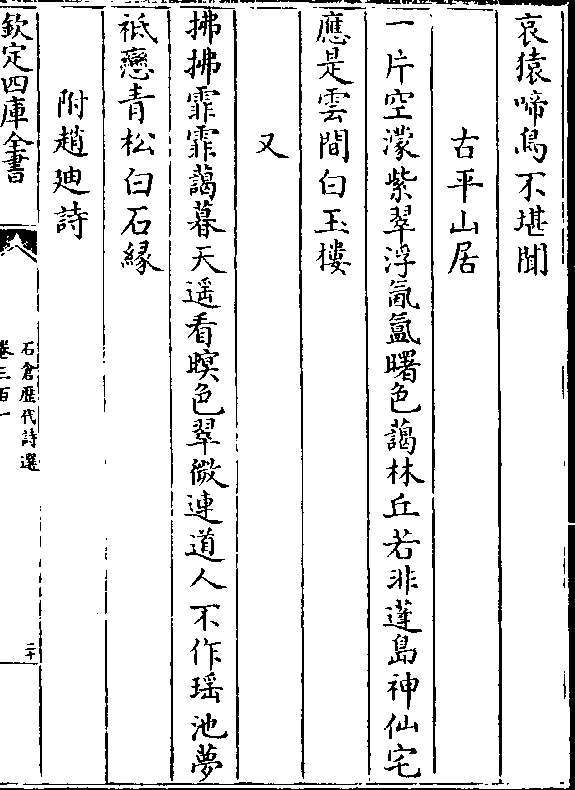 哀猿啼鳥不堪聞
古平山居
一片空濛紫翠浮氤氲曙色藹林丘若非蓬島神仙宅
應是雲間白玉樓
又
拂拂霏霏藹暮天遥看暝色翠微連道人不作瑶池夢
祗戀青松白石緣
附趙迪詩
欽定四庫全書
石倉歷代詩選
卷三百一
二十